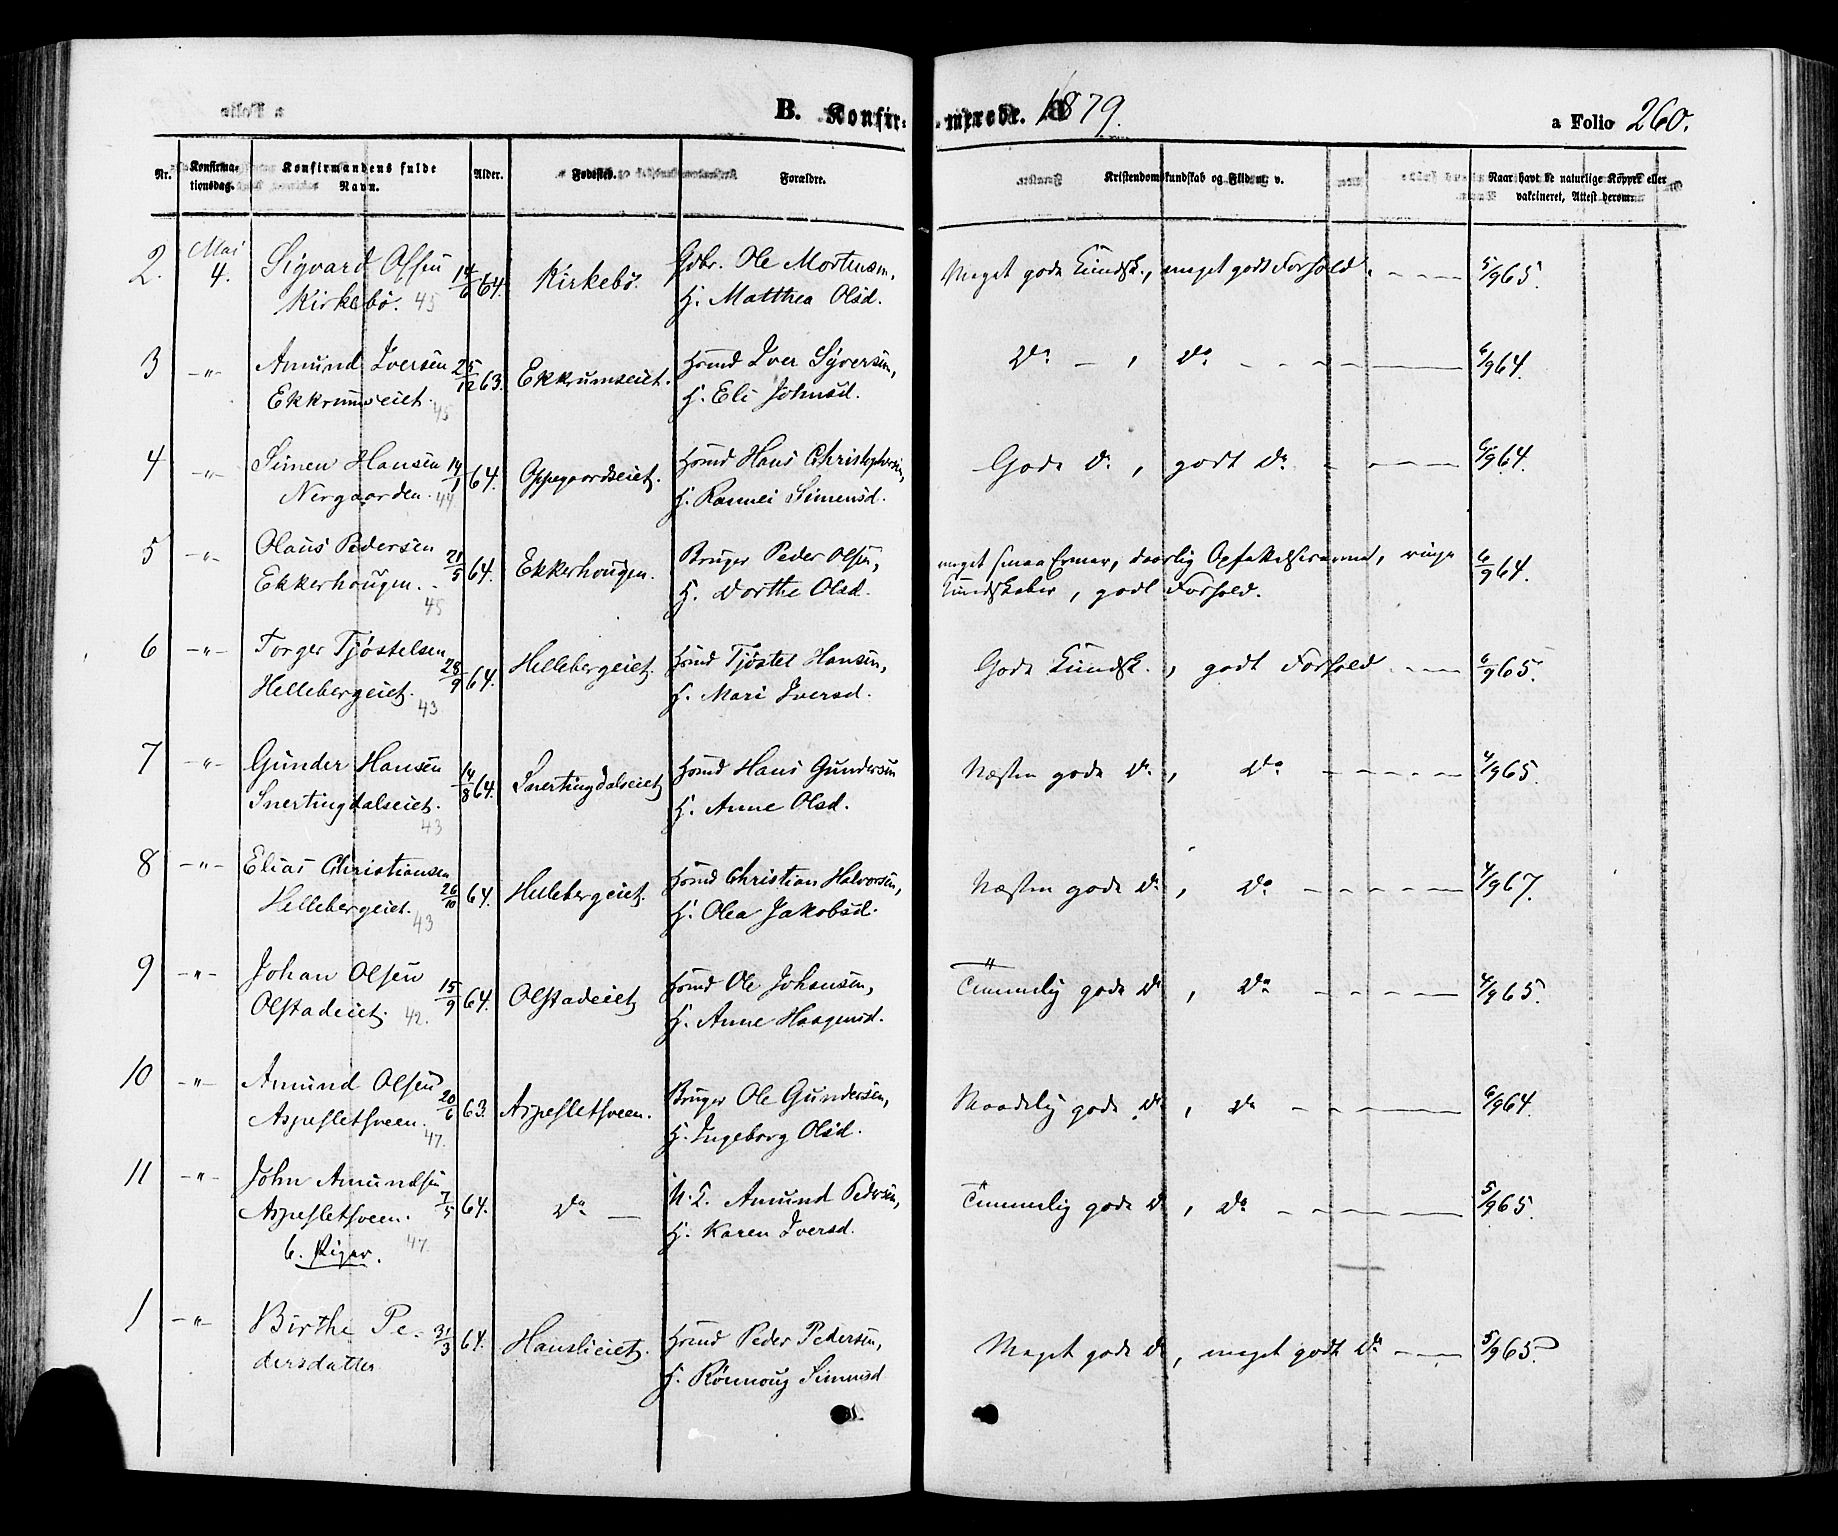 B. Konfir-merede. 1879. a Folio 260.
Nr. Konfirmationsdag. Konfirmandens fulde Navn. Alder. Fødested. Forældre. Kristendomskundskab og Flid m. v. Naar havt de naturlige Kopper eller vakcineret, Attest derom.
2. Mai 4. Sigvard Olsen 14/6 64. Kirkebø. Gdbr. Ole Mortensen, Meget gode Kundsk., meget godt Forhold. - - - - 5/9 65.
Kirkebø. 45 H. Matthea Olsd.
3 -"- Amund Iversen 25/12 63. Ekkrumseiet. Hsmd Iver Syversen, Do - , Do - - - - 6/9 64.
Ekkrumseiet. 45 H. Eli Johnsd.
4 -"- Simen Hansen 14/1 64. Oppegaardseiet. Hsmd Hans Christophersen, Gode Do, godt Do - - - - 6/9 64.
Nergaarden. 44 H. Rannei Simensd.
5 -"- Olaus Pedersen 21/5 64. Ekkerhougen. Bruger Peder Olsen, meget smaa Evner, daarlig Opfattelsesevne, ringe 6/9 64.
Ekkerhougen. 45 H. Dorthe Olsd. Kundskaber, godt Forhold.
6 -"- Torger Tjøstelsen 28/9 64. Hellebergeiet. Hsmd Tjøstel Hansen, Gode Kundsk., godt Forhold - - - - 6/9 65.
Hellebergeiet. 43 H. Mari Iversd.
7 -"- Gunder Hansen 14/8 64. Snertingdalseiet Hsmd Hans Gundersen Næsten gode Do, Do - - - - 4/9 65.
Snertingdalseiet. 43 H. Anne Olsd.
8 -"- Elias Christiansen 26/10 64. Hellebergeiet. Hsmd Christian Halvorsen, Næsten gode Do, Do - - - - 4/9 67.
Hellebergeiet. 43 H. Olea Jakobsd.
9 -"- Johan Olsen 15/9 64. Olstadeiet Hsmd Ole Johansen, Temmelig gode Do, Do - - - - 4/9 65.
Olstadeiet. 42. H. Anne Haagensd.
10 -"- Amund Olsen 20/6 63. Aspesletsveen. Bruger Ole Gundersen, Maadelig gode Do, Do - - - - 6/9 64.
Aspesletsveen. 47. H. Ingeborg Olsd.
11 -"- John Amundsen 7/5 64. Do - Amund Pedersen, Temmelig gode Do, Do - - - - 5/9 65.
Aspesletsveen. 47. H. Karen Iversd.
b. Piger.
1 -"- Birthe Pe- 31/3 64. Hanslieiet. Hsmd Peder Pedersen, Meget gode Do, meget godt Do - - - 5/9 65.
dersdatter H. Rønnoug Simensd